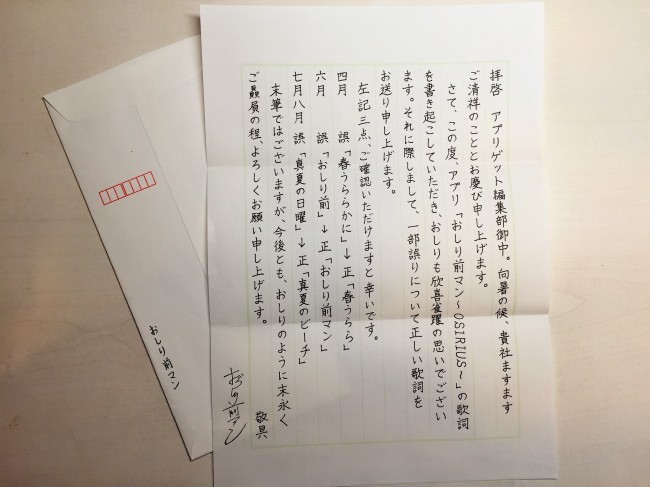 拝啓　アプリゲット編集部御中。向暑の候、貴社ますます
ご清祥のこととお慶び申し上げます。
さて、この度、アプリ「おしり前マン～OSIRIUS～」の歌詞
を書き起こしていただき、おしりも欣喜雀躍の思いでござい
ます。それに際しまして、一部誤りについて正しい歌詞を
お送り申し上げます。
左記三点、ご確認いただけますと幸いです。
四月　誤「春うららかに」→正「春うらら」
六月　誤「おしり前」→正「おしり前マン」
七月八月　誤「真夏の日曜」→正「真夏のビーチ」
末筆ではございますが、今後とも、おしりのように末永く
ご贔屓の程、よろしくお願い申し上げます。
敬具
おしり前マン
おしり前マン